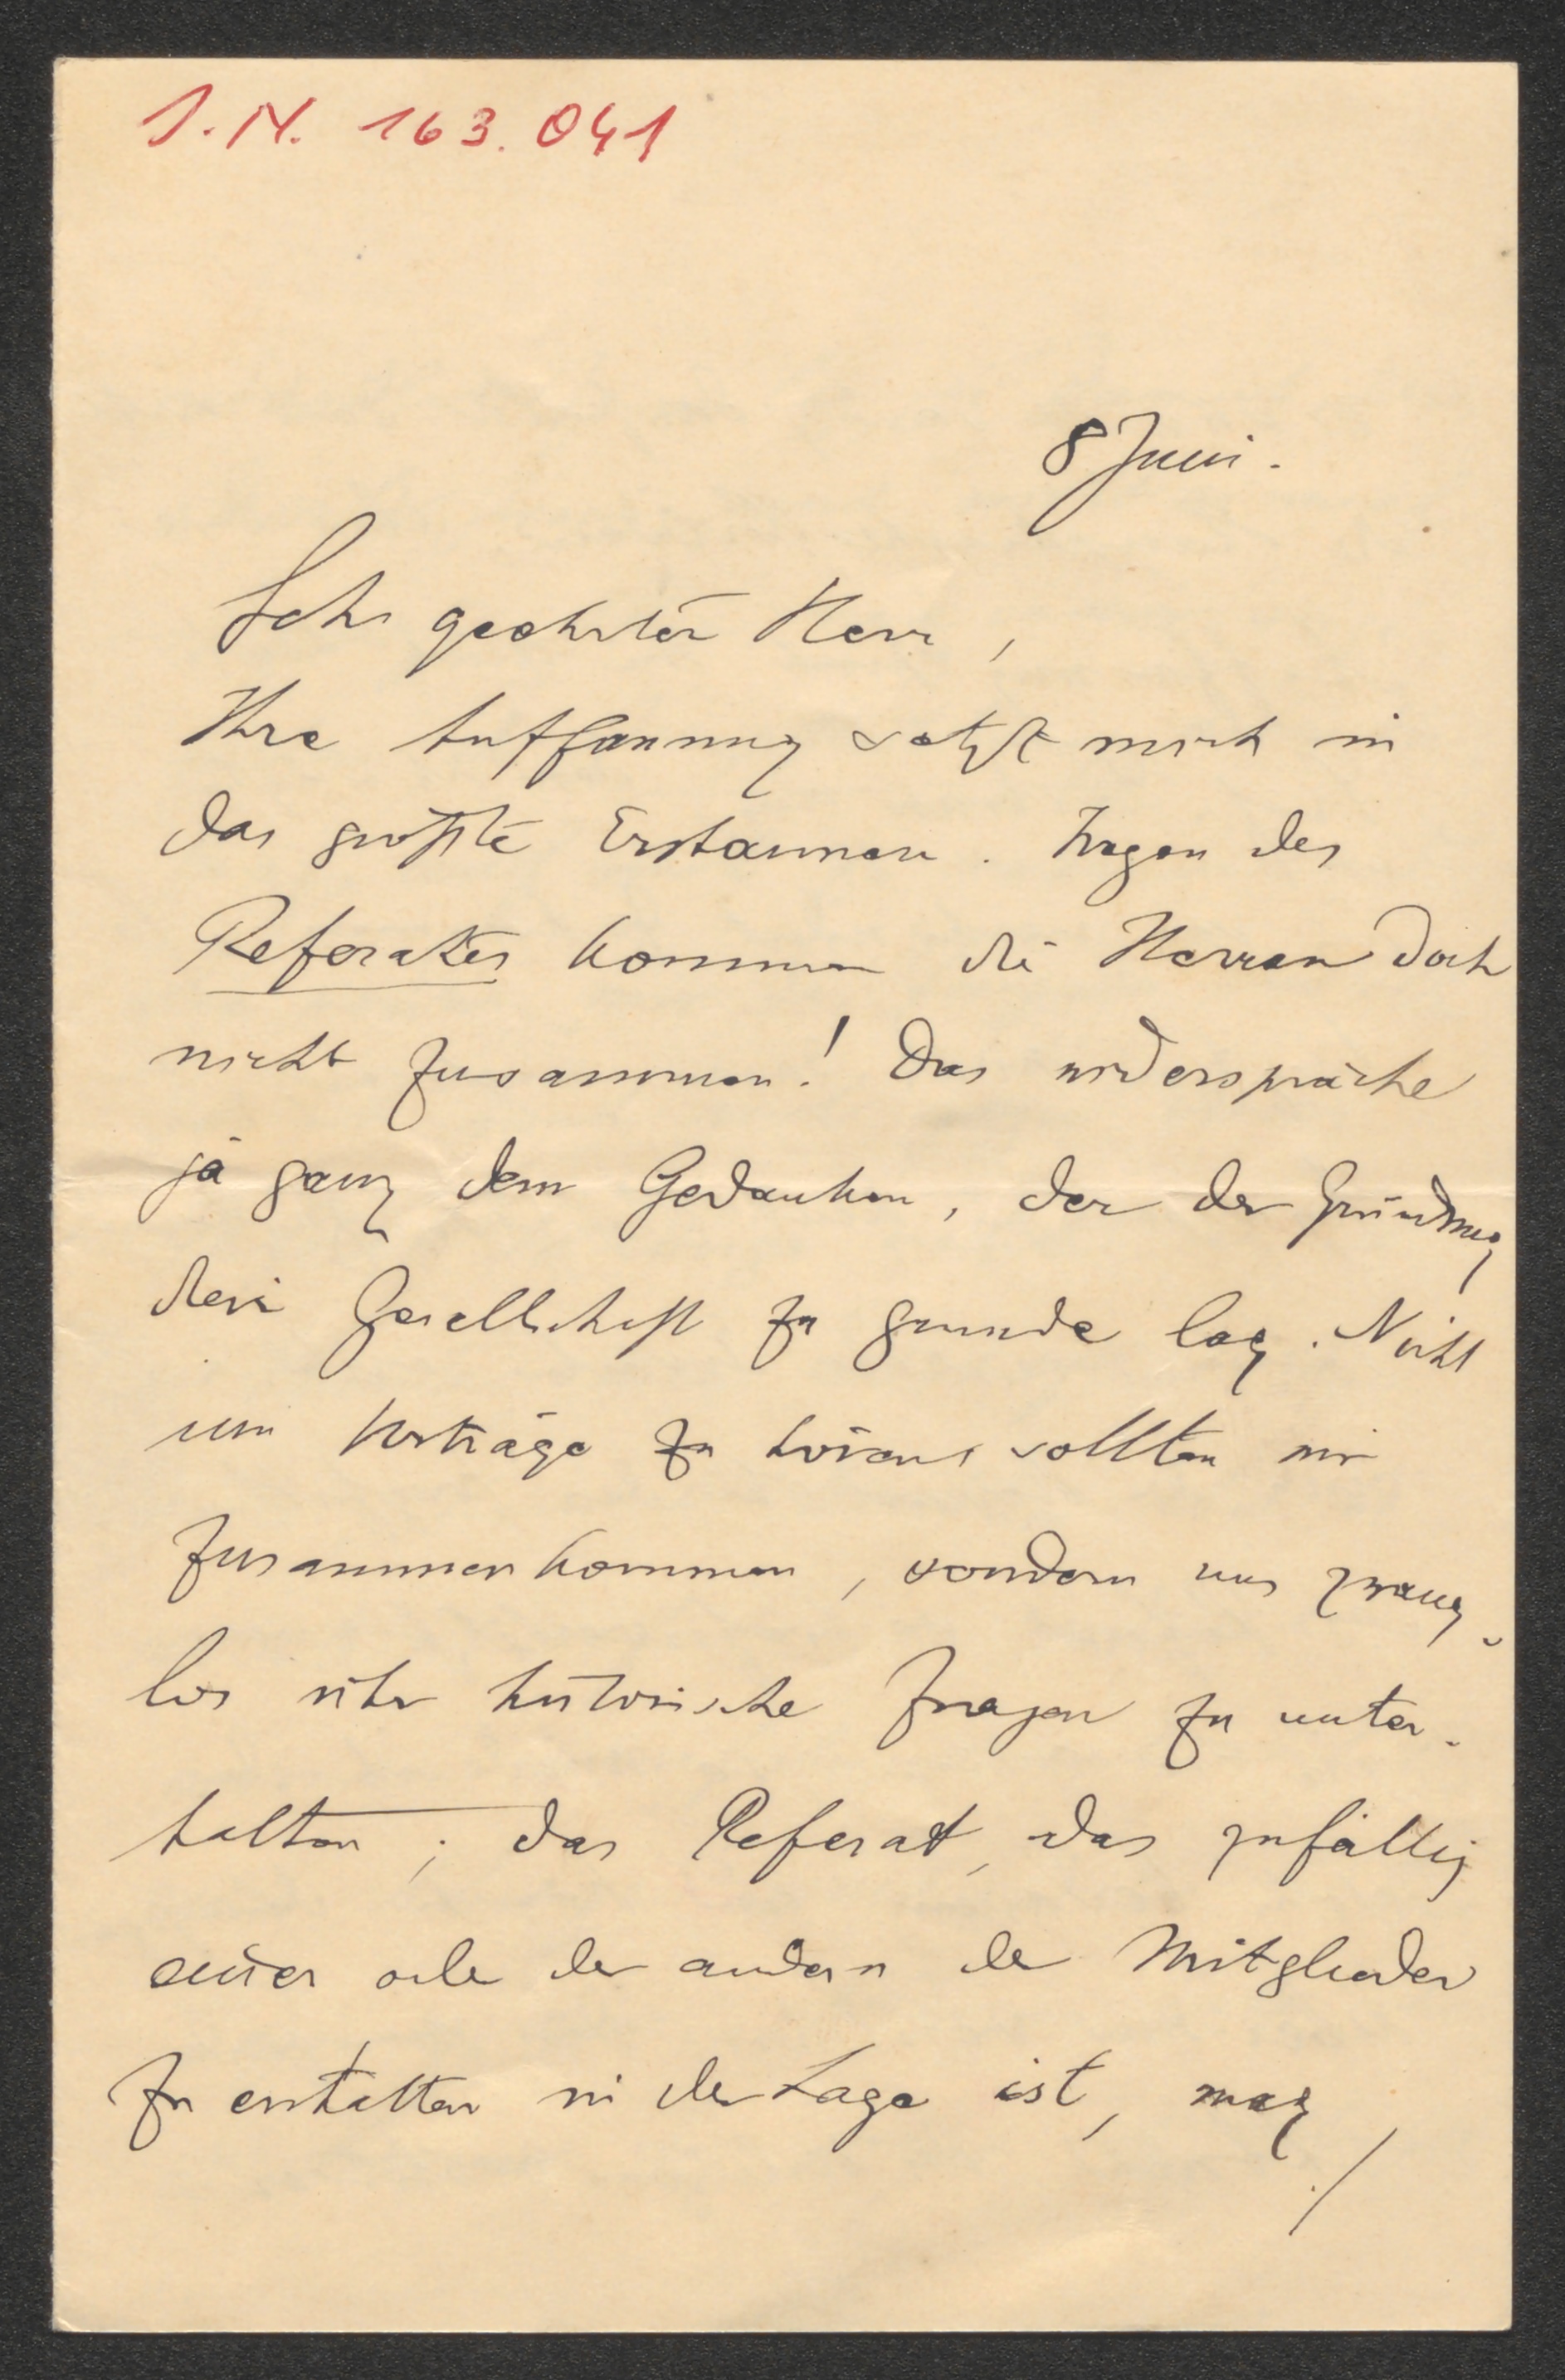 I.N. 163.041
8 Juni.
Sehr geehrter Herr,
Ihre Auffassung setzt mich in
das größte Erstaunen. Wegen des
Referates kommen die Herren doch
nicht zusammen! Das widerspräche
ja ganz dem Gedanken, der der Gründung
der Gesellschaft zu grunde lag. Nicht
um Vorträge zu hören, sollten wir
zusammenkommen, sondern uns zwang-
los über historische Fragen zu unter-
halten; das Referat, das zufällig
einer oder der andern der Mitglieder
zu erstatten in der Lage ist, mag
./